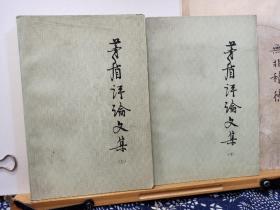 茅盾评论文集
(上)
茅盾评论文集
(下)